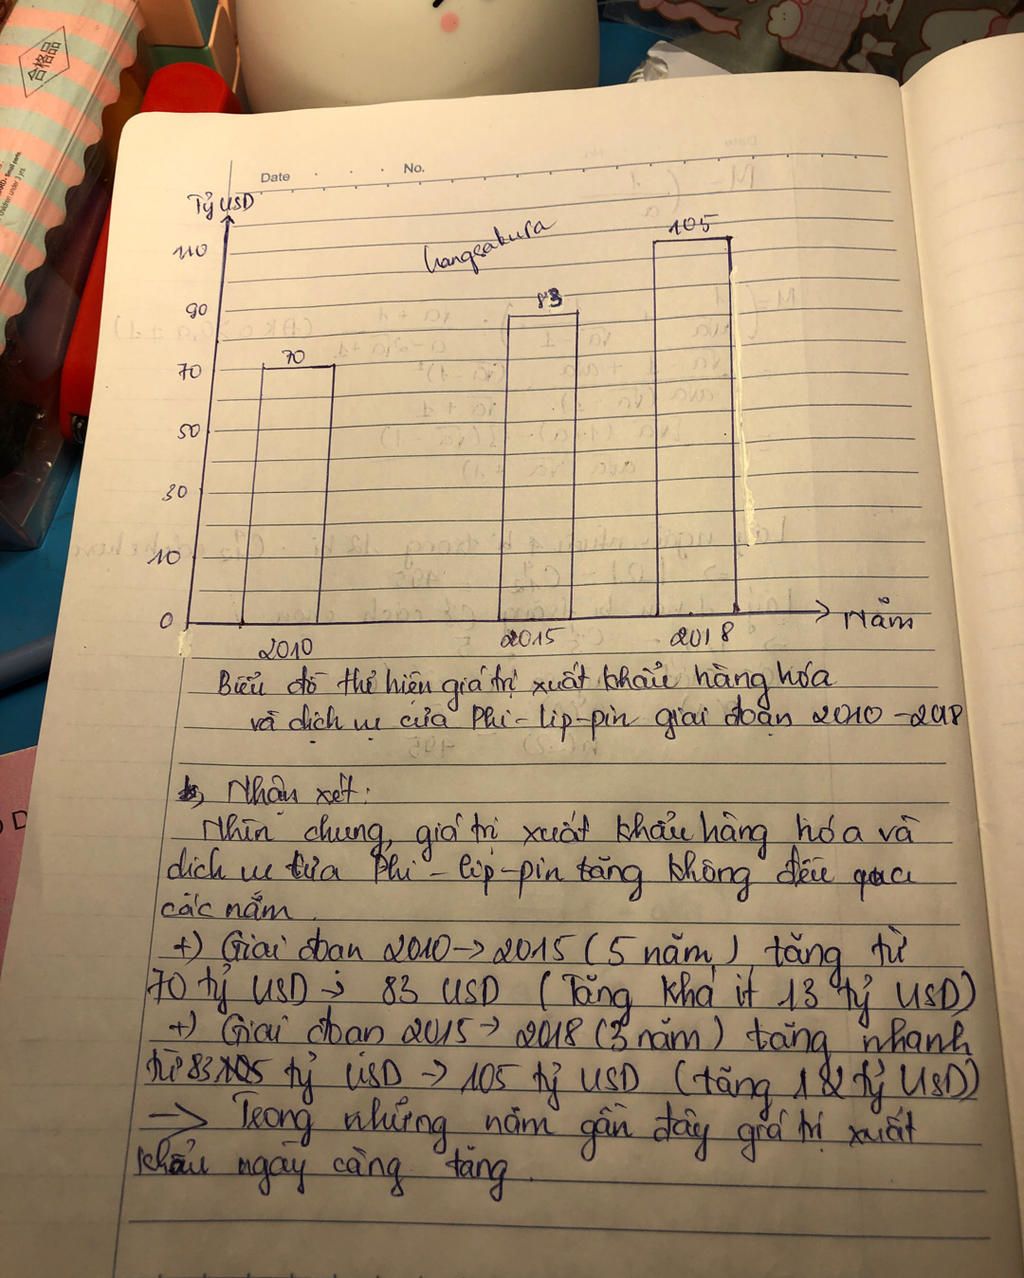 合格品
Date
No.
Tỷ USD
hangsakura
105
110
83
90
70
70
50
30
10
0
2010
2015
2018
Năm
Biểu đồ thể hiện giá trị xuất khẩu hàng hóa
và dịch vụ của Phi-lip-pin giai đoạn 2010-2018
b, Nhận xét:
Nhìn chung, giá trị xuất khẩu hàng hóa và
dịch vụ của Phi-lip-pin tăng không đều qua
các năm.
+) Giai đoạn 2010→2015 (5 năm) tăng từ
70 tỷ USD → 83 USD (Tăng khá ít 13 tỷ USD)
+) Giai đoạn 2015→2018 (3 năm) tăng nhanh
từ 83 tỷ USD → 105 tỷ USD (tăng 12 tỷ USD)
→ Trong những năm gần đây giá trị xuất
khẩu ngày càng tăng.